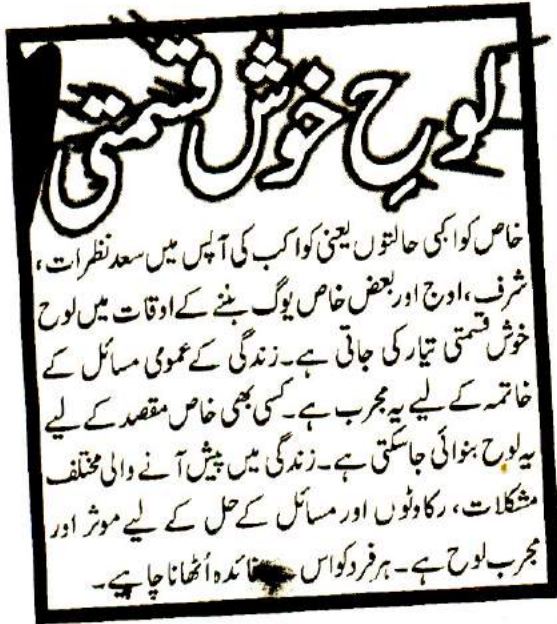 لوحِ خوش قسمتی
خاص کواکبی حالتوں یعنی کواکب کی آپس میں سعد نظرات،
شرف، اوج اور بعض خاص یوگ بننے کے اوقات میں لوح
خوش قسمتی تیار کی جاتی ہے۔ زندگی کے عمومی مسائل کے
خاتمہ کے لیے یہ مجرب ہے۔ کسی بھی خاص مقصد کے لیے
یہ لوح بنوائی جاسکتی ہے۔ زندگی میں پیش آنے والی مختلف
مشکلات، رکاوٹوں اور مسائل کے حل کے لیے موثر اور
مجرب لوح ہے۔ ہر فرد کو اس فائدہ اُٹھانا چاہیے۔